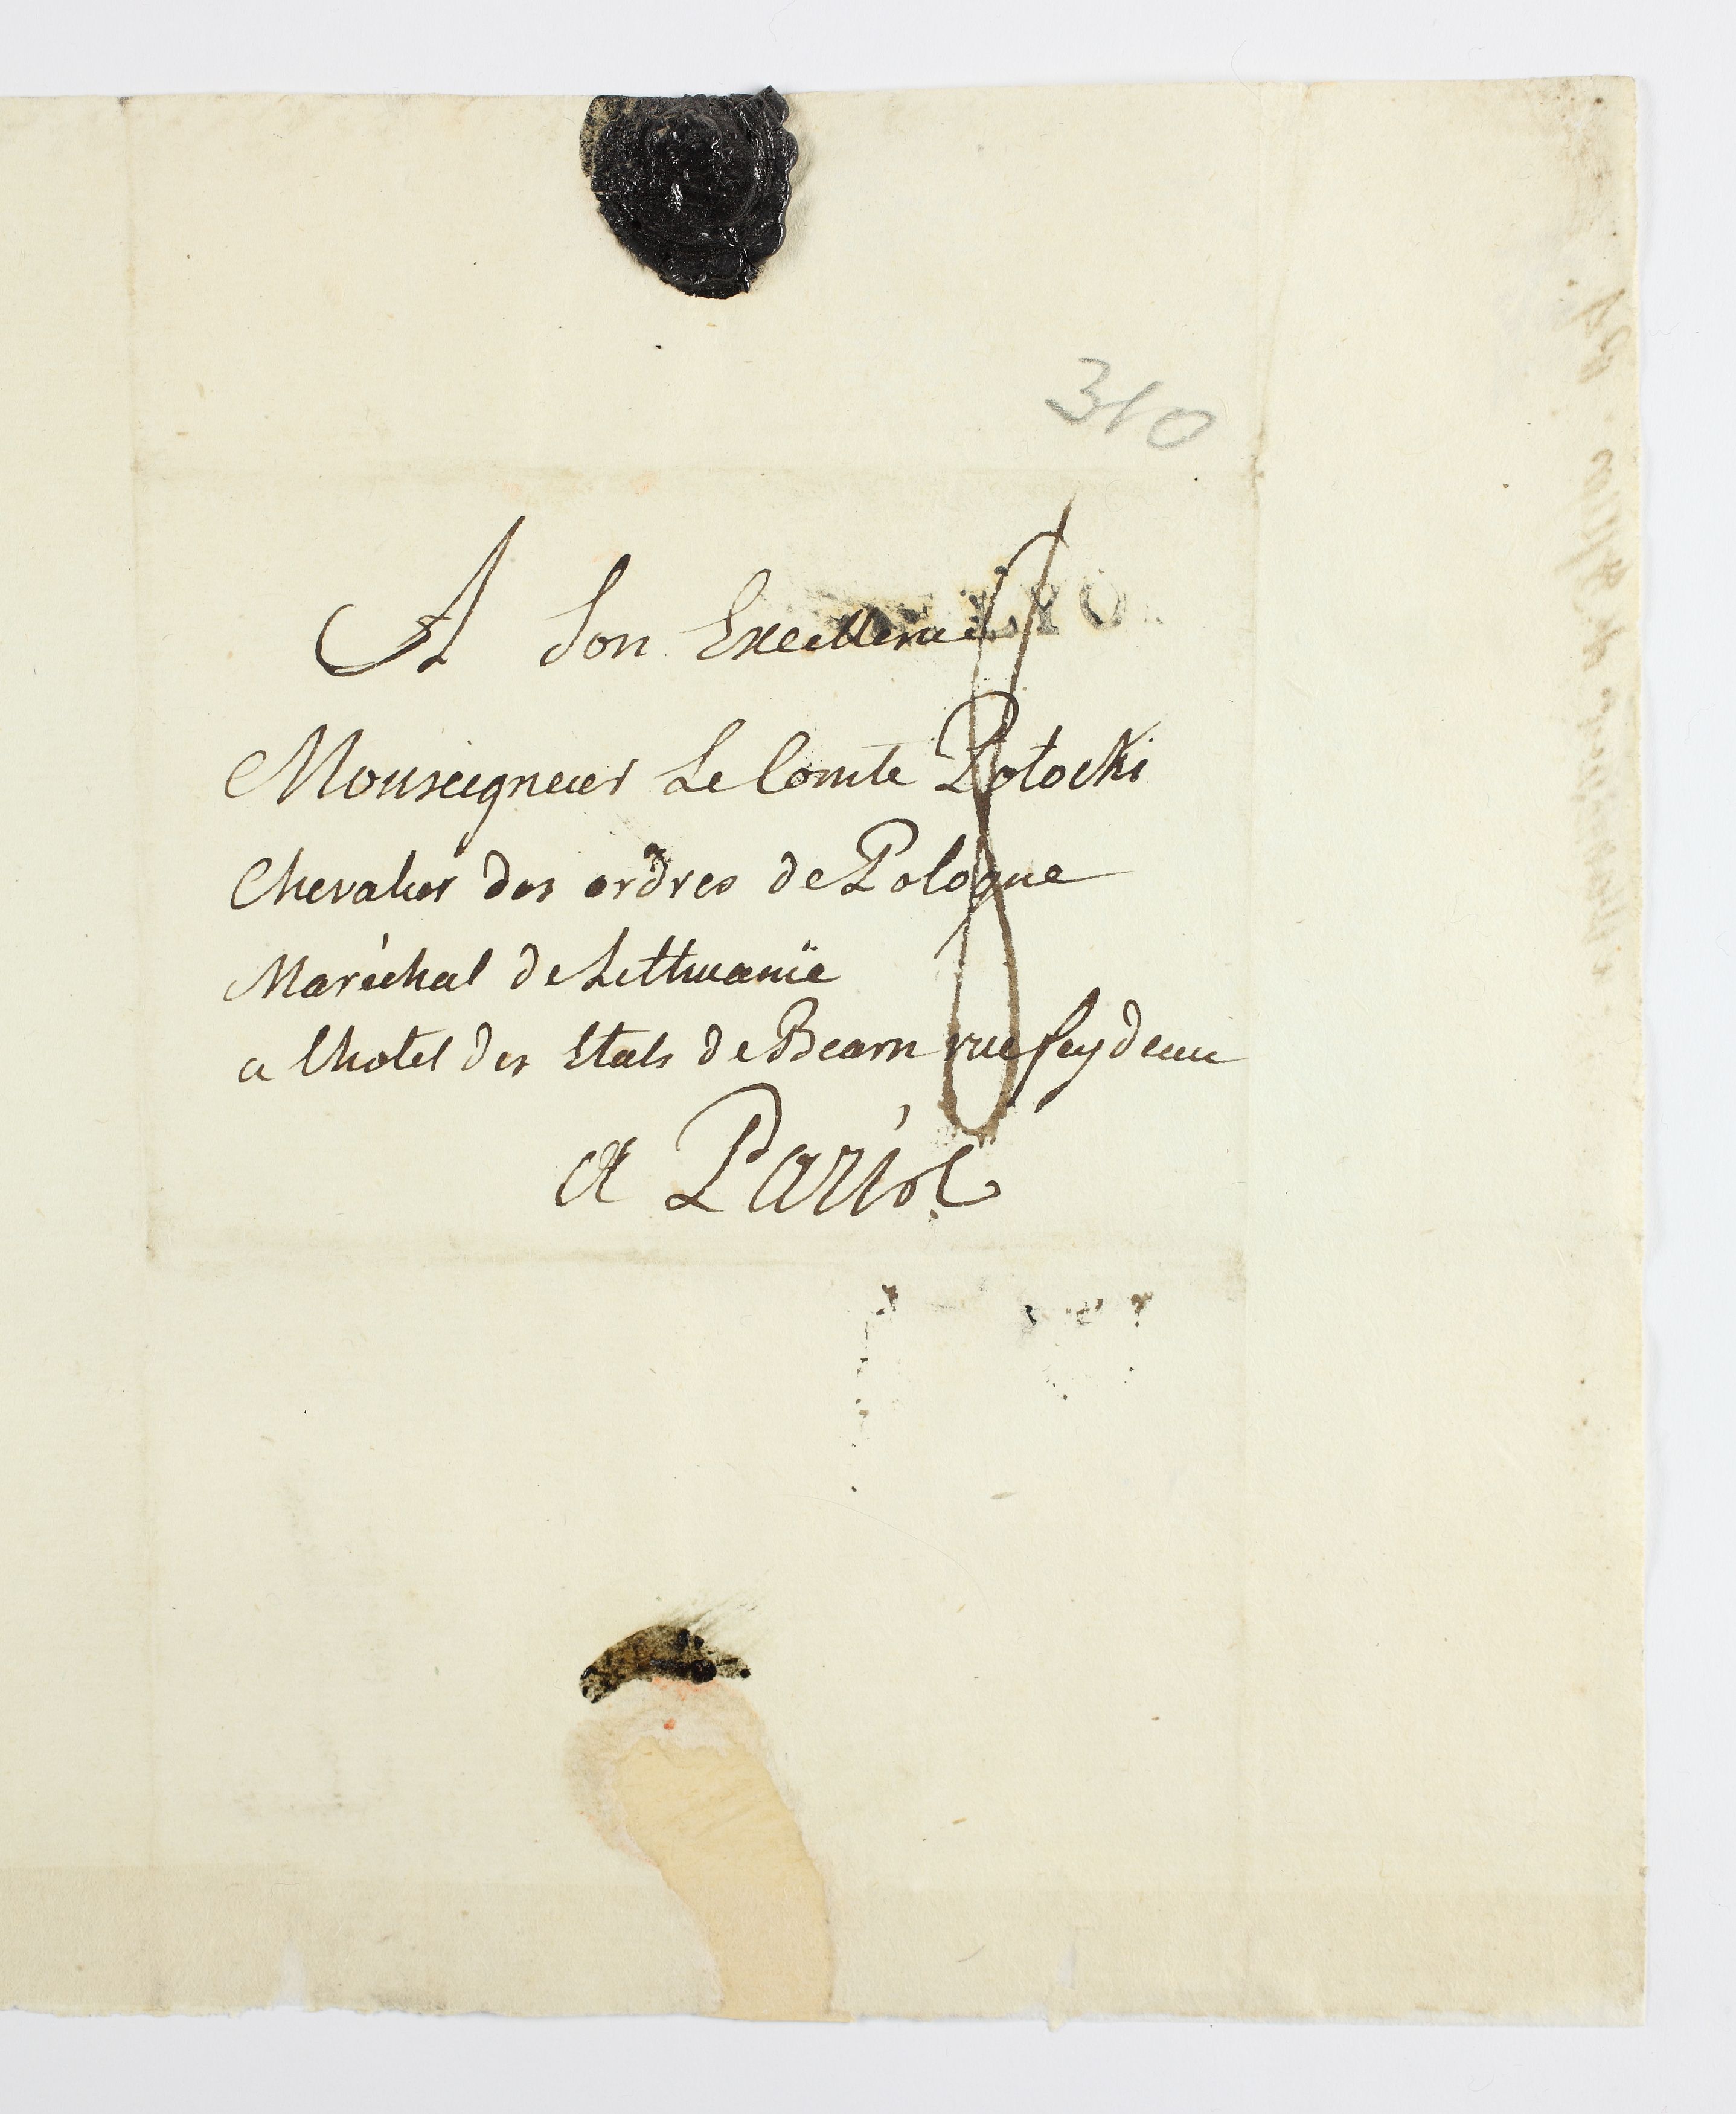 310
LYO
A Son Excellence
Monseigneur Le Comte Potocki
Chevalier des ordres de Pologne
Maréchal de Lithuanïe
a lhotel des Etats de Bearn rue feydeau
a Paris